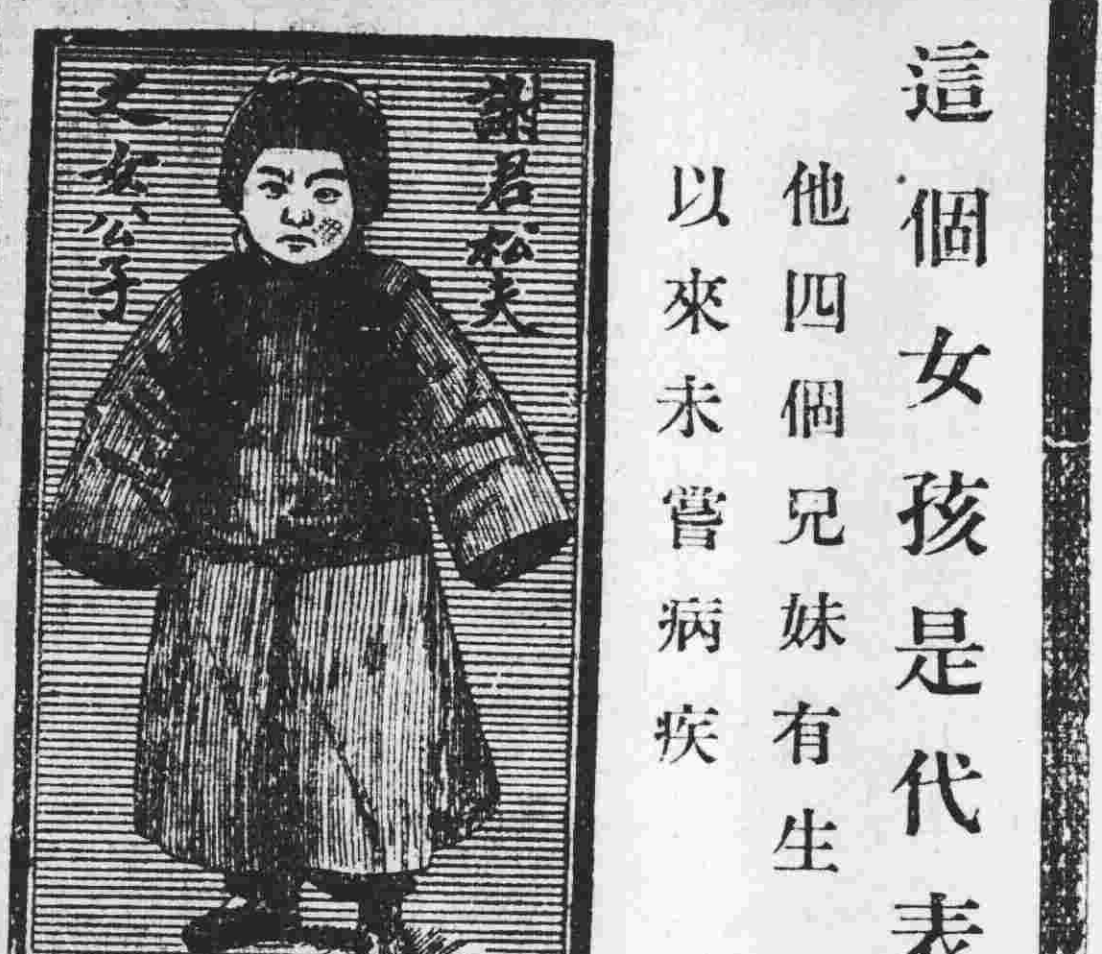 這個女孩是代表
他四個兄妹有生
以來未嘗病疾
謝君松夫
之女公子